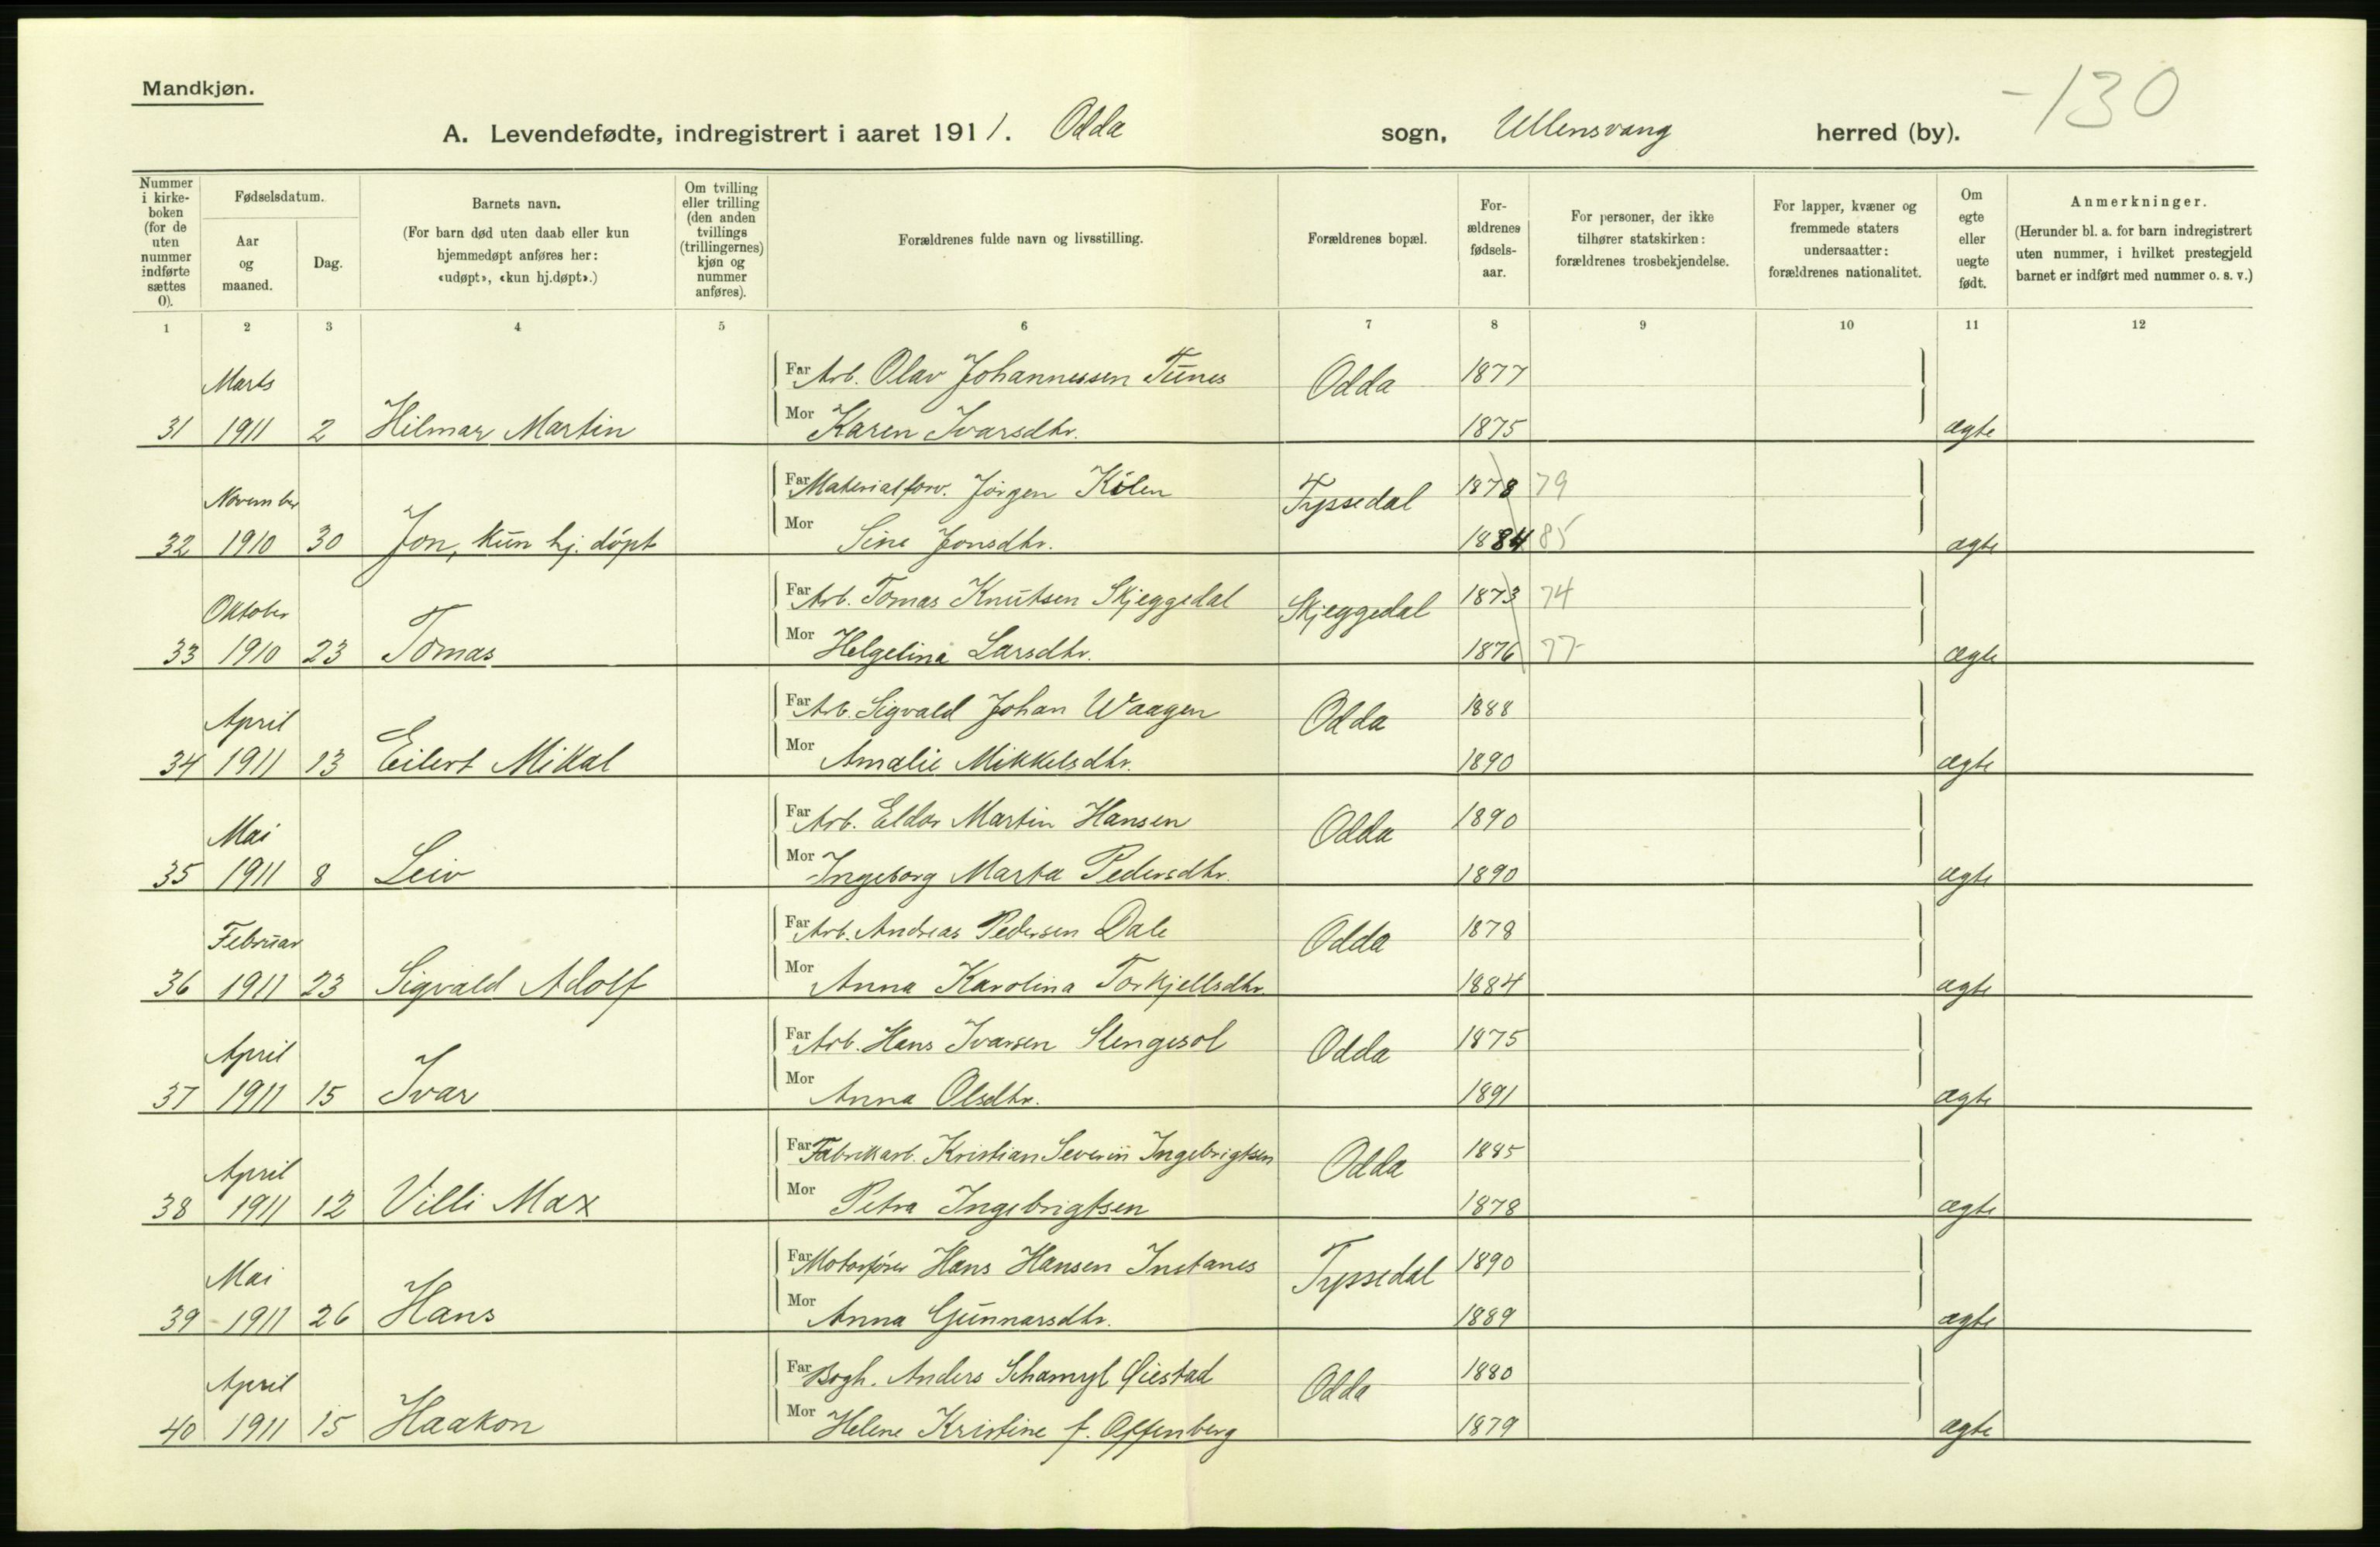 Mandkjøn.
-130
A. Levendefødte, indregistrert i aaret 1911. Odda sogn, Ullensvang herred (by).
Nummer i kirke-boken (for de uten nummer indførte sættes 0).
Fødselsdatum.
Aar og maaned.
Dag.
Barnets navn.
(For barn død uten daab eller kun hjemmedøpt anføres her: «udøpt», «kun hj.døpt».)
Om tvilling eller trilling (den anden tvillings (trillingernes) kjøn og nummer anføres).
Forældrenes fulde navn og livsstilling.
Forældrenes bopæl.
For-ældrenes fødsels-aar.
For personer, der ikke tilhører statskirken: forældrenes trosbekjendelse.
For lapper, kvæner og fremmede staters undersaatter: forældrenes nationalitet.
Om egte eller uegte født.
Anmerkninger.
(Herunder bl. a. for barn indregistrert uten nummer, i hvilket prestegjeld barnet er indført med nummer o. s. v.)
1 2 3 4 5 6 7 8 9 10 11 12
Marts Far Arb. Olav Johannessen Tunes Odda 1877
31 1911 2 Hilmar Martin Mor Karen Ivarsdtr. 1875 ægte
November Far Materialforv. Jørgen Kølen Tyssedal 1878 79
32 1910 30 Jon, kun hj. døpt Mor Sine Jonsdtr. 1884 85 ægte
Oktober Far Arb. Tomas Knutsen Skjeggedal Skjeggedal 1873 74
33 1910 23 Tomas Mor Helgelina Larsdtr. 1876 77 ægte
April Far Arb. Sigvald Johan Waagen Odda 1888
34 1911 13 Eilert Mikal Mor Amalie Mikkelsdtr. 1890 ægte
Mai Far Arb. Eldor Martin Hansen Odda 1890
35 1911 8 Leiv Mor Ingeborg Marta Pedersdtr. 1890 ægte
Februar Far Arb. Andreas Pedersen Dale Odda 1878
36 1911 23 Sigvald Adolf Mor Anna Karolina Torkjellsdtr. 1884 ægte
April Far Arb. Hans Ivarsen Slengesol Odda 1875
37 1911 15 Ivar Mor Anna Olsdtr. 1891 ægte
April Far Fabrikarb. Kristian Severin Ingebrigtsen Odda 1885
38 1911 12 Villi Max Mor Petra Ingebrigtsen 1878 ægte
Mai Far Motorfører Hans Hansen Instanes Tyssedal 1890
39 1911 26 Hans Mor Anna Gunnarsdtr. 1889 ægte
April Far Bogh. Anders Schamyl Qiestad Odda 1880
40 1911 15 Haakon Mor Helene Kristine f. Offenberg 1879 ægte